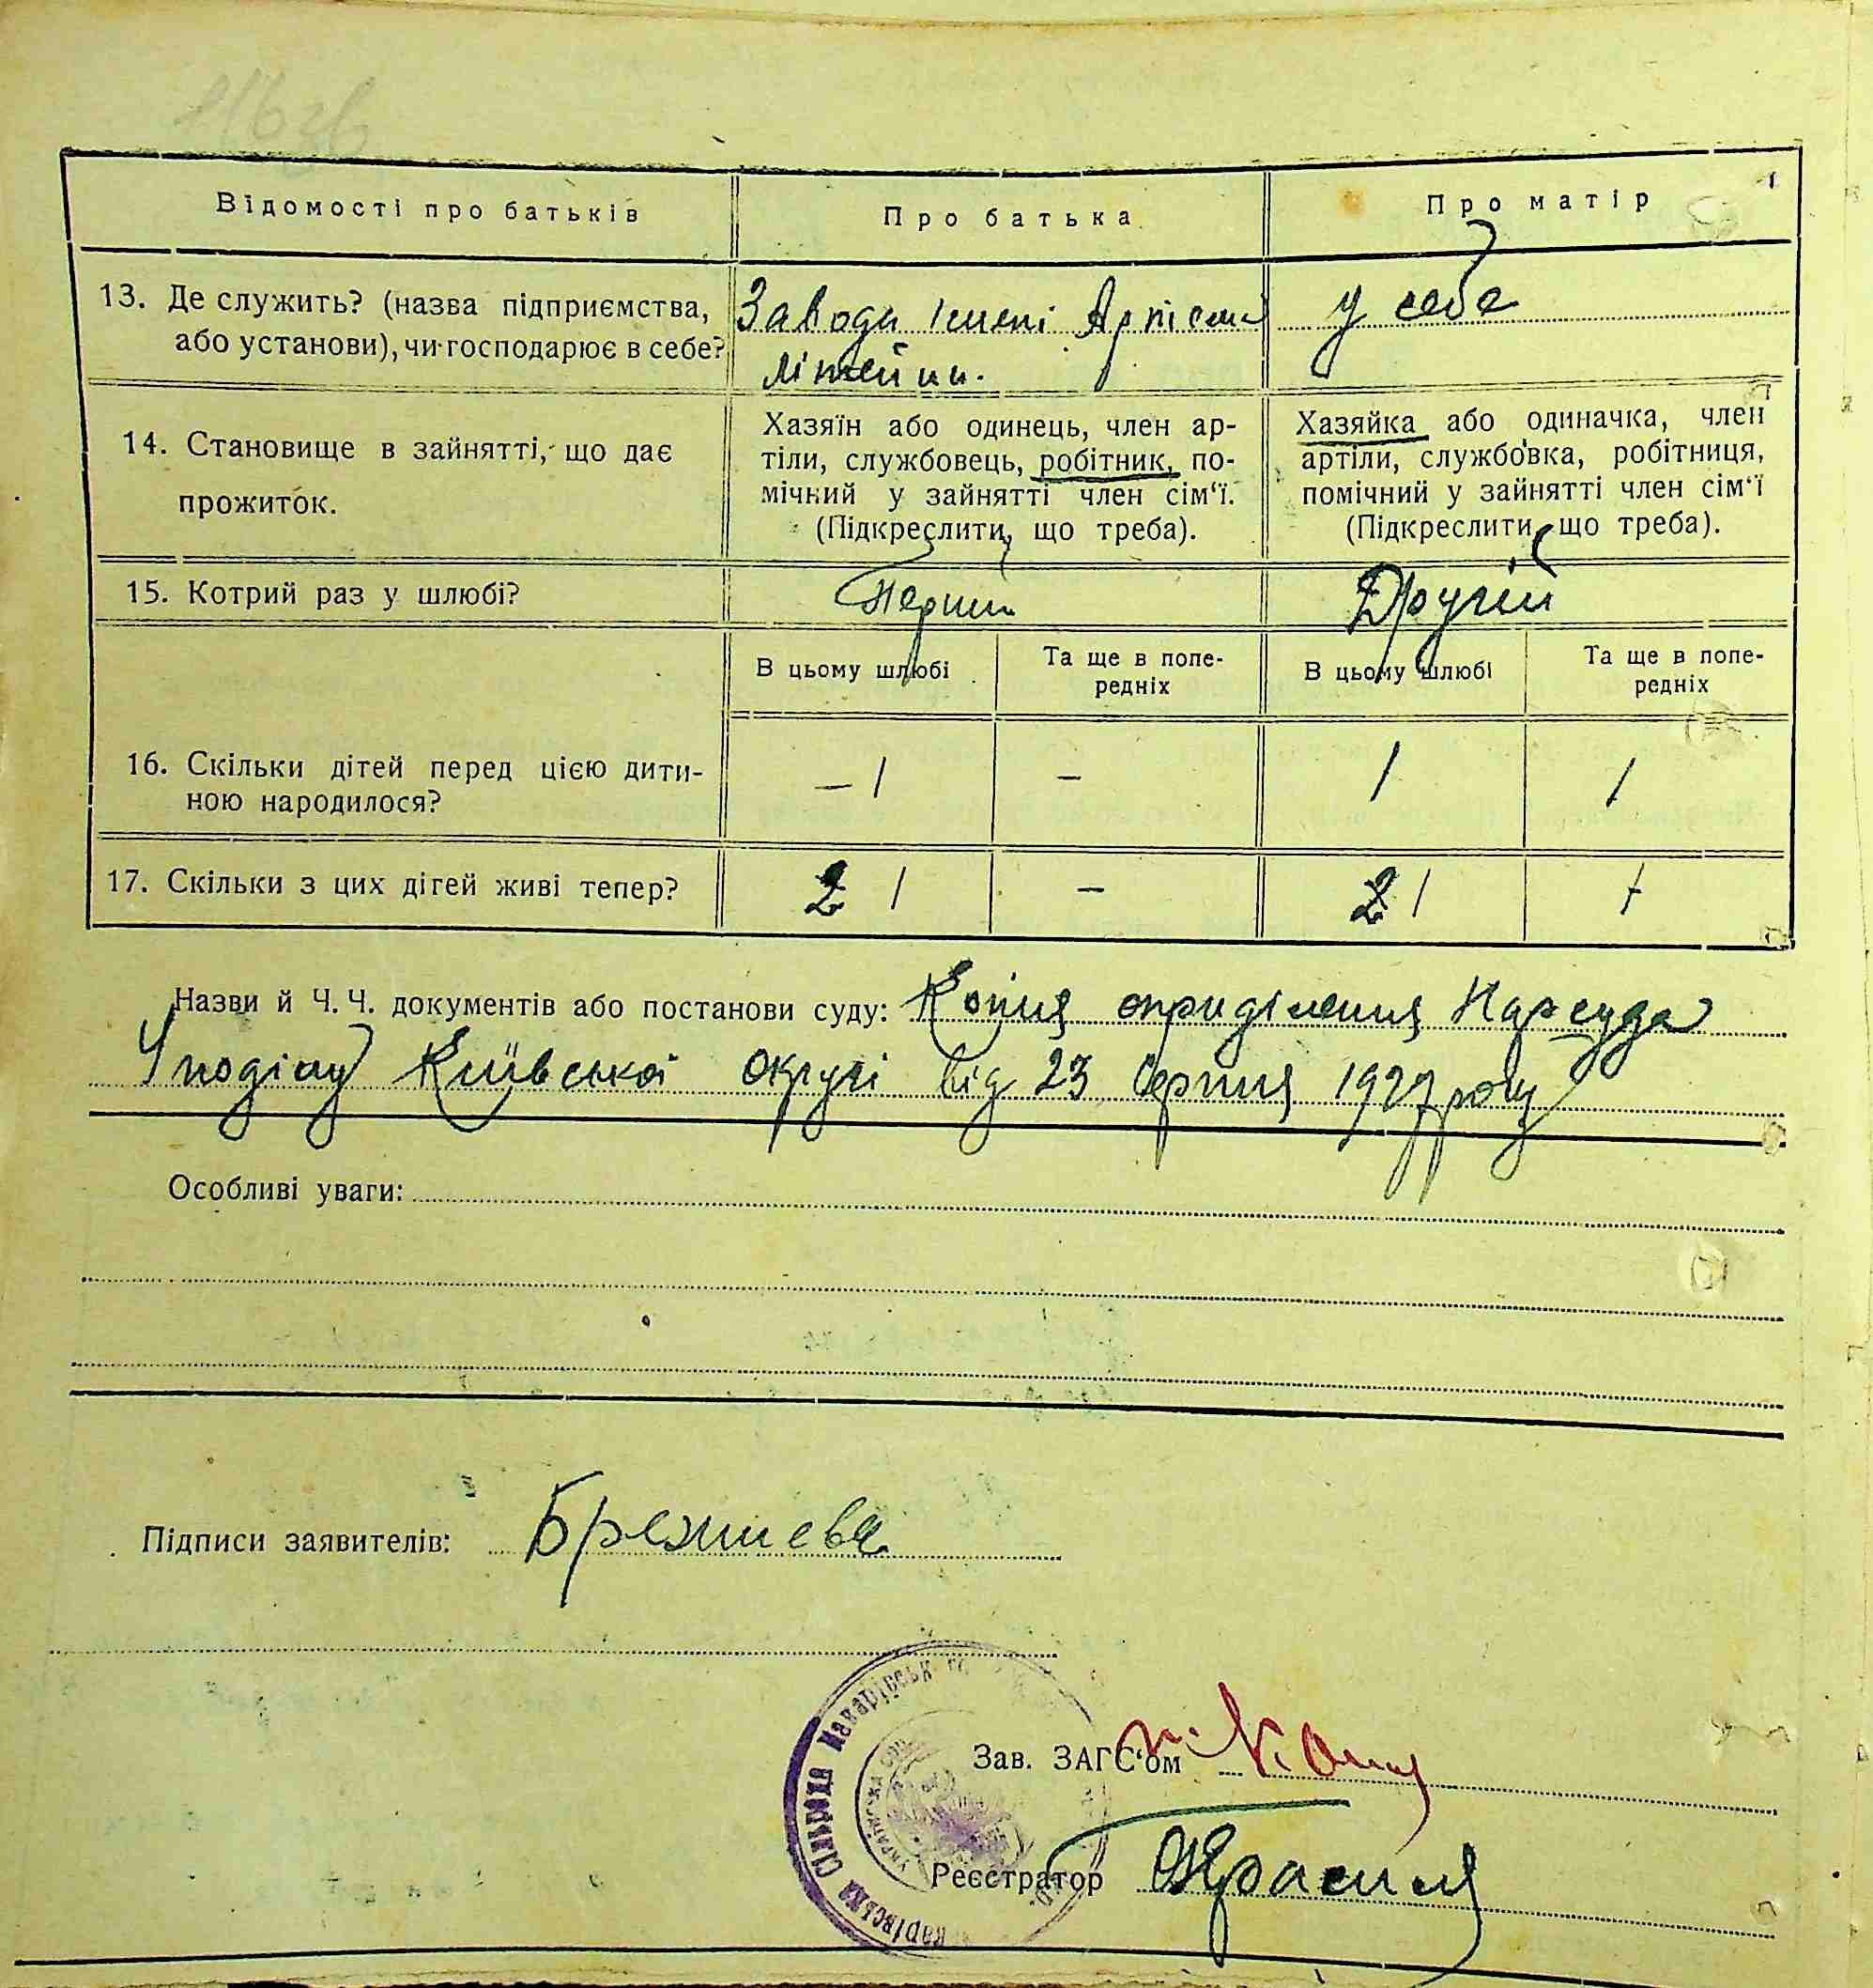 Відомості про батьків
Про батька
Про матір
13. Де служить? (назва підприємства, або установи), чи господарює в себе?
Заводи Імені
літейни.
у себе
14. Становище в зайнятті, що дає прожиток.
Хазяїн або одинець, член ар-
тіли, службовець, робітник, по-
мічний у зайнятті член сім‘ї.
(Підкреслити, що треба).
Хазяйка або одиначка, член
артіли, службовка, робітниця,
помічний у зайнятті член сім‘ї
(Підкреслити, що треба).
15. Котрий раз у шлюбі?
Перший
Другій
В цьому шлюбі
Та ще в попе-
редніх
В цьому шлюбі
Та ще в попе-
редніх
16. Скільки дітей перед цією дити-
ною народилося?
— 1
–
1
1
17. Скільки з цих дітей живі тепер?
2 1
–
2 1
Назви й Ч. Ч. документів або постанови суду: Копия оприділения Нарсуда
Київської округі від 23 Серпня 1927 року
Особливі уваги:
Підписи заявителів:
Зав. ЗАГС‘ом
Реєстратор